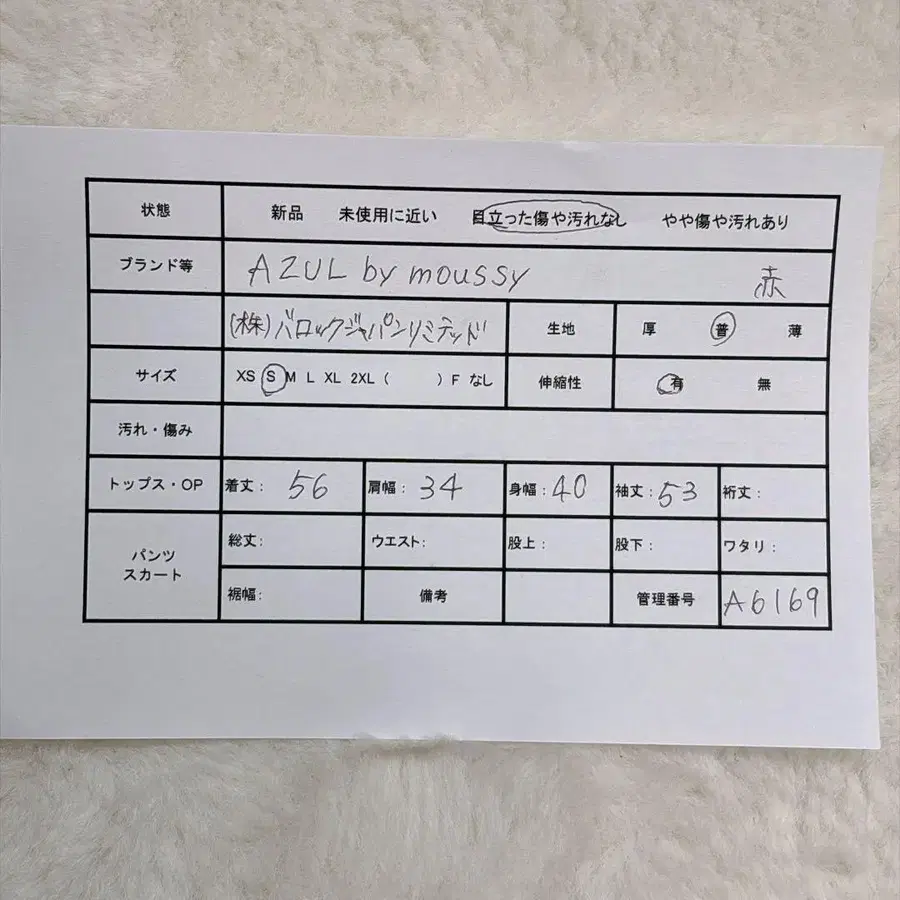 状態 新品 未使用に近い 目立った傷や汚れなし やや傷や汚れあり
ブランド等 AZUL by moussy 赤
(株)バロックジャパンリミテッド 生地 厚 普 薄
サイズ XS S M L XL 2XL ( ) F なし 伸縮性 有 無
汚れ・傷み
トップス・OP 着丈: 56 肩幅: 34 身幅: 40 袖丈: 53 裄丈:
パンツ スカート 総丈: ウエスト: 股上: 股下: ワタリ:
裾幅: 備考 管理番号 A6169